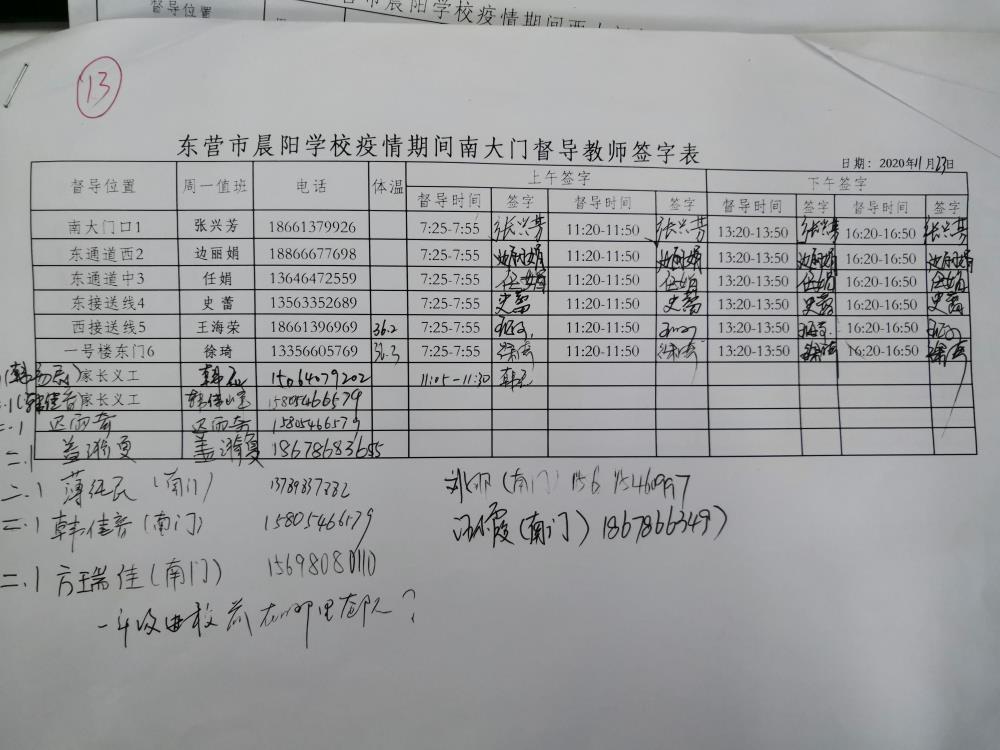 督导位置
晨阳学校疫情期间西大门
13
东营市晨阳学校疫情期间南大门督导教师签字表
日期：2020年11月23日
督导位置 周一值班 电话 体温 上午签字 下午签字
督导时间 签字 督导时间 签字 督导时间 签字 督导时间 签字
南大门口1 张兴芳 18661379926 7:25-7:55 张兴芳 11:20-11:50 张兴芳 13:20-13:50 张兴芳 16:20-16:50 张兴芳
东通道西2 边丽娟 18866677698 7:25-7:55 边丽娟 11:20-11:50 边丽娟 13:20-13:50 边丽娟 16:20-16:50 边丽娟
东通道中3 任娟 13646472559 7:25-7:55 任娟 11:20-11:50 任娟 13:20-13:50 任娟 16:20-16:50 任娟
东接送线4 史蕾 13563352689 7:25-7:55 史蕾 11:20-11:50 史蕾 13:20-13:50 史蕾 16:20-16:50 史蕾
西接送线5 王海荣 18661396969 36.2 7:25-7:55 11:20-11:50 13:20-13:50 16:20-16:50
一号楼东门6 徐琦 13356605769 36.3 7:25-7:55 徐琦 11:20-11:50 徐琦 13:20-13:50 徐琦 16:20-16:50 徐琦
家长义工 15064079202 11:05-11:30
二.1(韩佳音)家长义工 15805466579
二.1 迟雨奇 迟雨奇 15805466579
二.1 盖瀚夏 盖瀚夏 18678683655
二.1 (南门) 13789837282 (南门)
二.1 韩佳音(南门) 15805466579 (南门) 18678663497
二.1 方瑞佳(南门) 15698080110